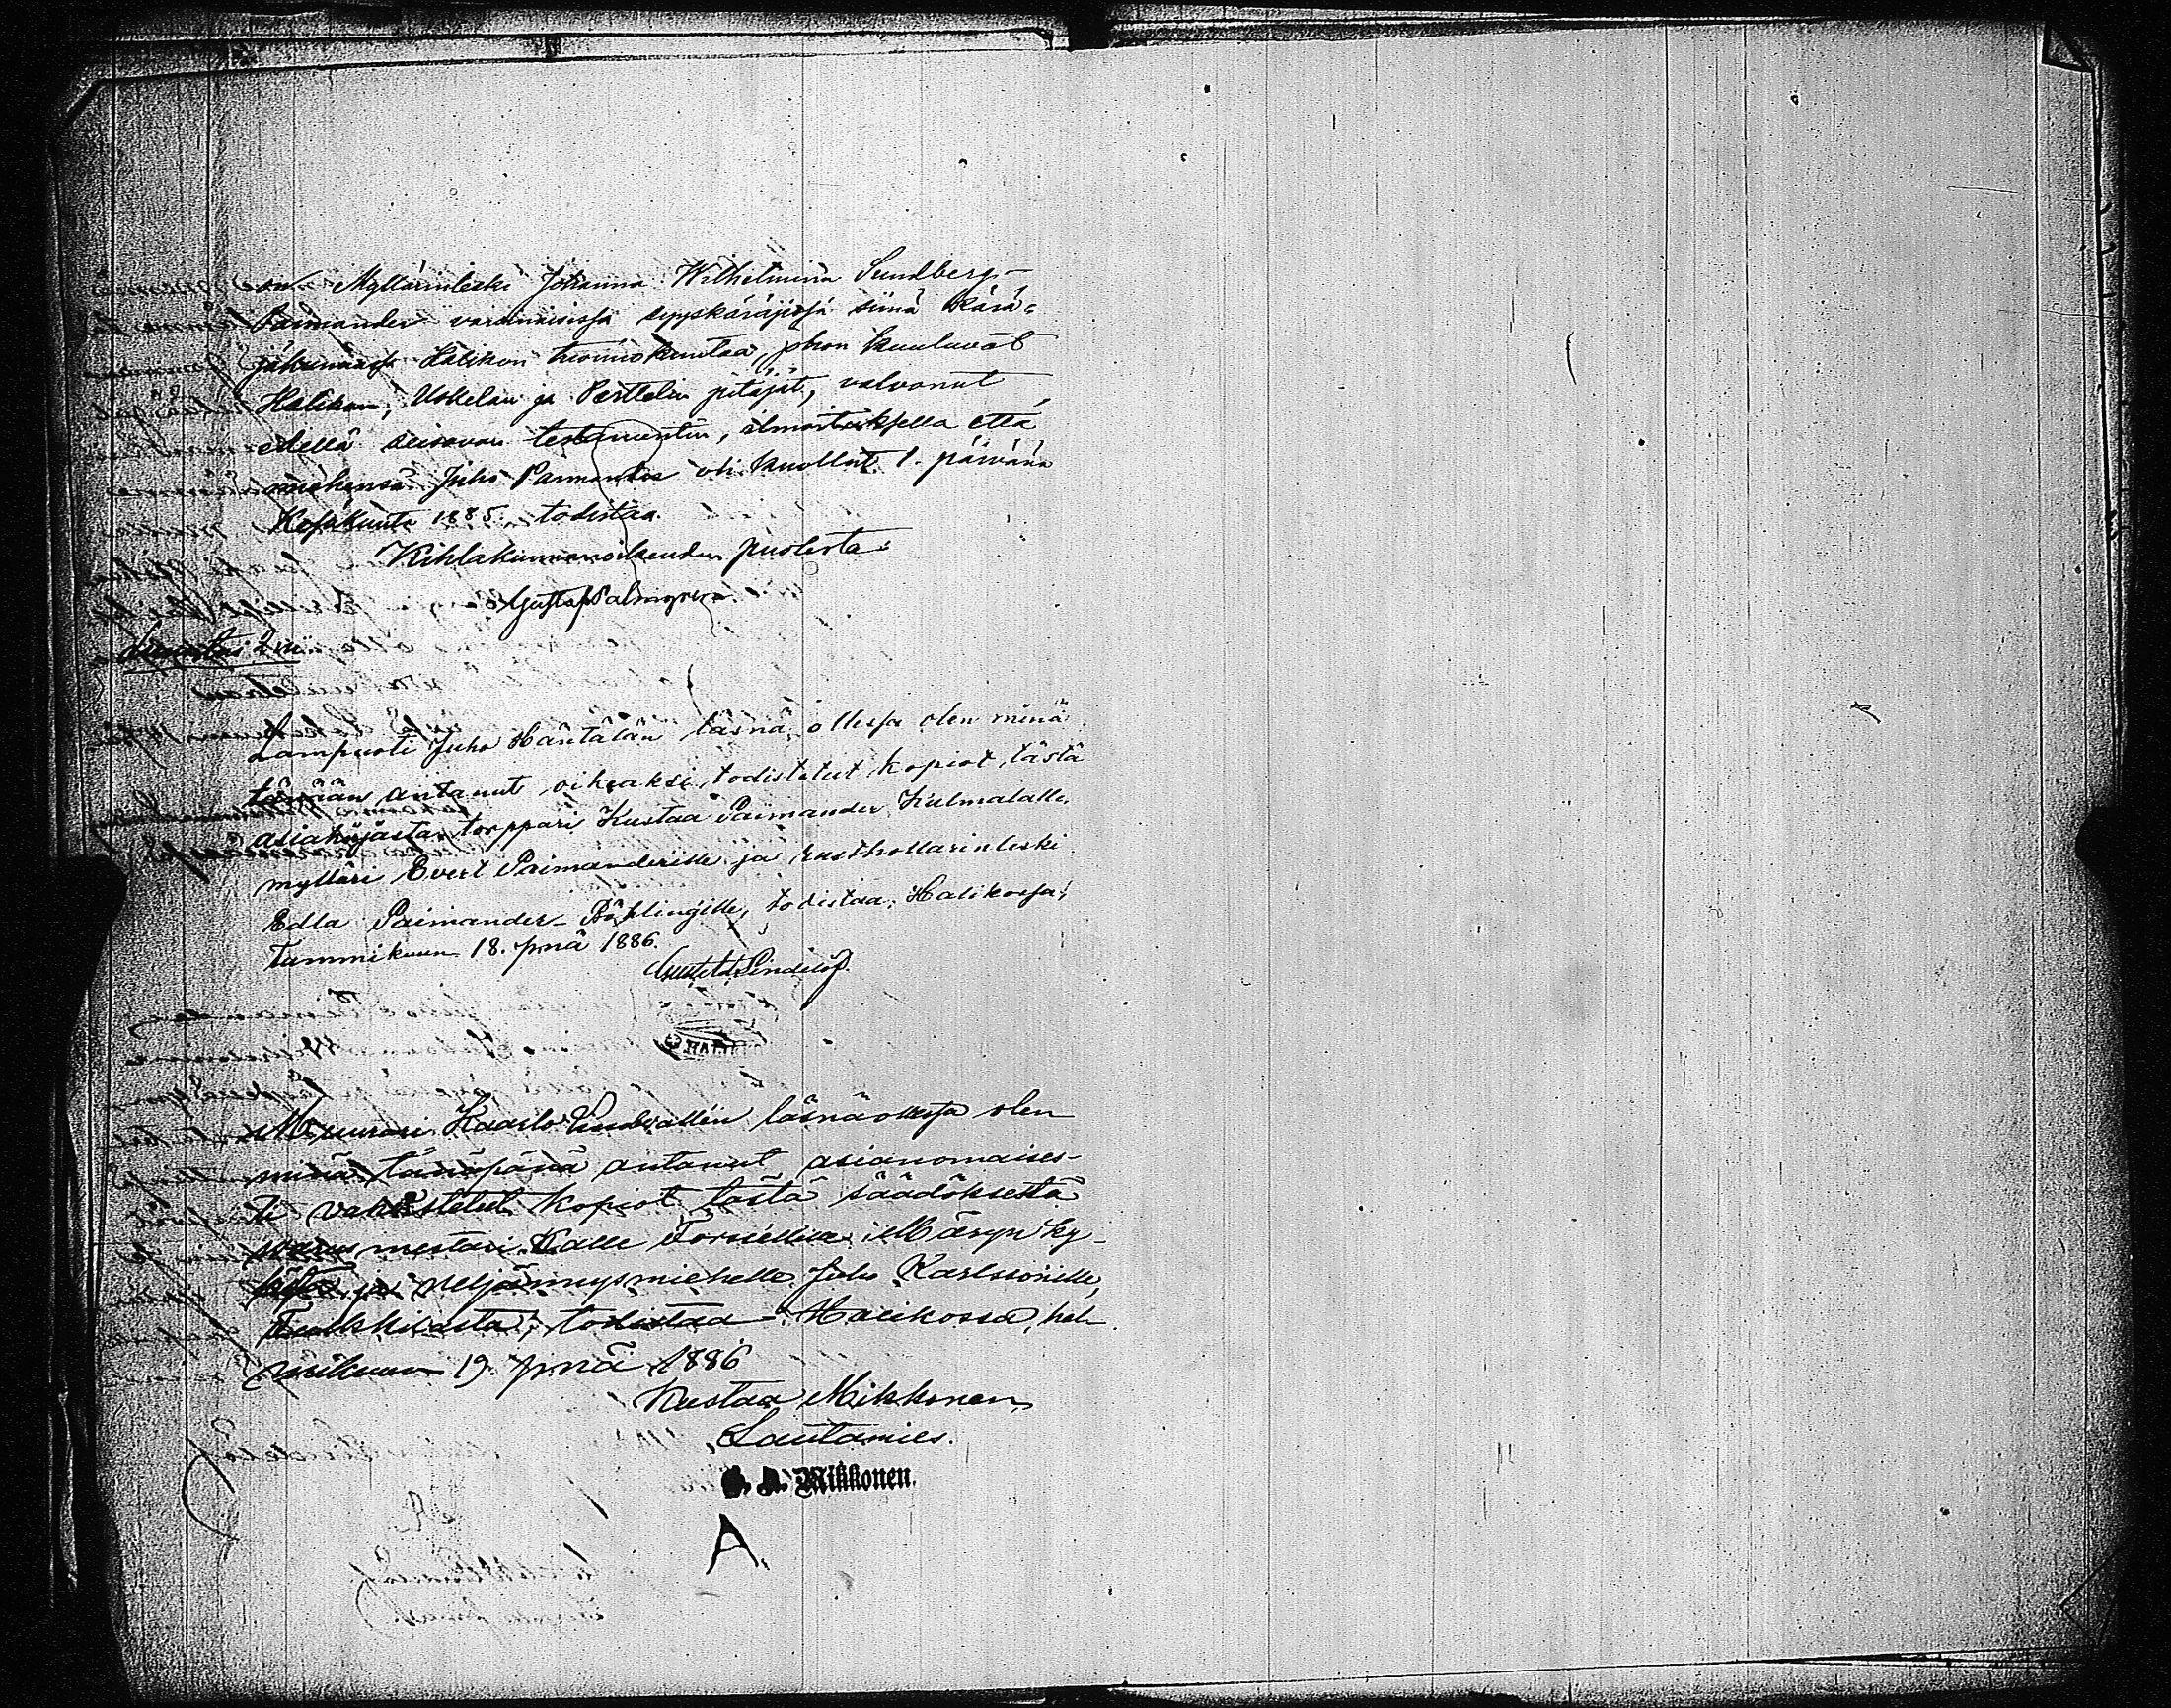 on Myllärinleski Johanna Wilhelmina Sundberg-
Paimander varsinaisissa syyskäräjissä siinä Kärä-
jäkunnassa Halikon tuomiokuntaa, johon kuuluvat
Halikon, Uskelan ja Perttelin pitäjät, valvonut
edellä seisovan testamentin, ilmoituksella että
miehensä Juho Paimander oli kuollut 1. päivänä
Kesäkuuta 1885. todistaa
Kihlakunnanoikeuden puolesta:
Gustaf Palmgren.
Lunastus 2 m.
Lampuoti Juho Häntälän läsnä ollessa olen minä
tänään antanut oikeaksi todistetut kopiot tästä
asiakirjasta torppari Kustaa Paimander Kulmalalle,
mylläri Evert Paimanderille ja rusthollarinleski
Edla Paimander-Böhlingille, todistaa, Halikossa,
Tammikuun 18. pnä 1886.
Lindelöf.
Muurari Kaarlo läsnäollessa olen
minä tänäpänä antanut asianomaises-
ti vahvistetut kopiot tästä säädöksestä
mestari Kalle Forsellille Märyn ky-
lästä ja neljännysmiehelle Juho Karlssonille,
todistaa Halikossa, hel-
mikuun 19. pnä 1886
Kustaa Mikkonen,
Lautamies.
Mikkonen.
A.